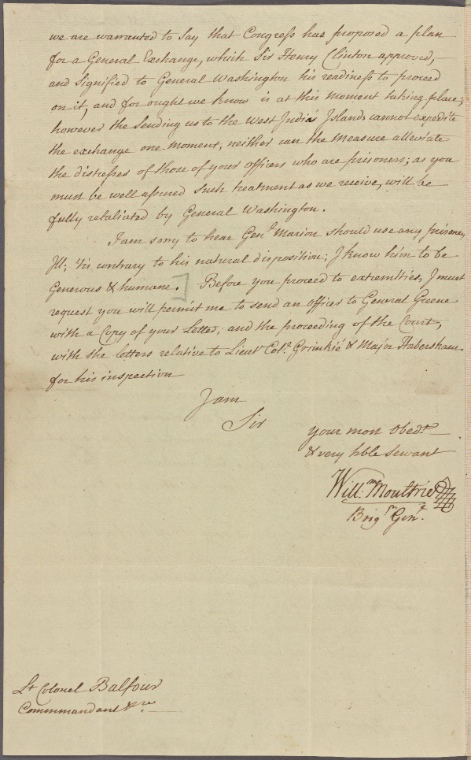 we are warranted to say that Congress has proposed a plan
for a General Exchange, which Sir Henry Clinton approved,
and signified to General Washington his readiness to proceed
on it, and for ought we know is at this moment taking place;
however the sending us to the West India Islands cannot expedite
the exchange one moment, neither can the Measure alleviate
the distresses of those of your officers who are prisoners; as you
must be well assured such treatment as we receive, will be
fully retaliated by General Washington.
I am sorry to hear Genl. Marion should use any prisoners
Ill; 'tis contrary to his natural disposition; I know him to be
Generous & humane.] Before you proceed to extremities, I must
request you will permit me to send an officer to General Greene
with a Copy of your Letter, and the proceeding of the Court,
with the letters relative to Lieut. Col. Grimkié & Major Habersham
for his inspection
I am
Sir
Your most Obedt.
& very hble servant
Willm. Moultrie
Brigr. Genl.
Lt Colonel Balfour
Commandant &ca